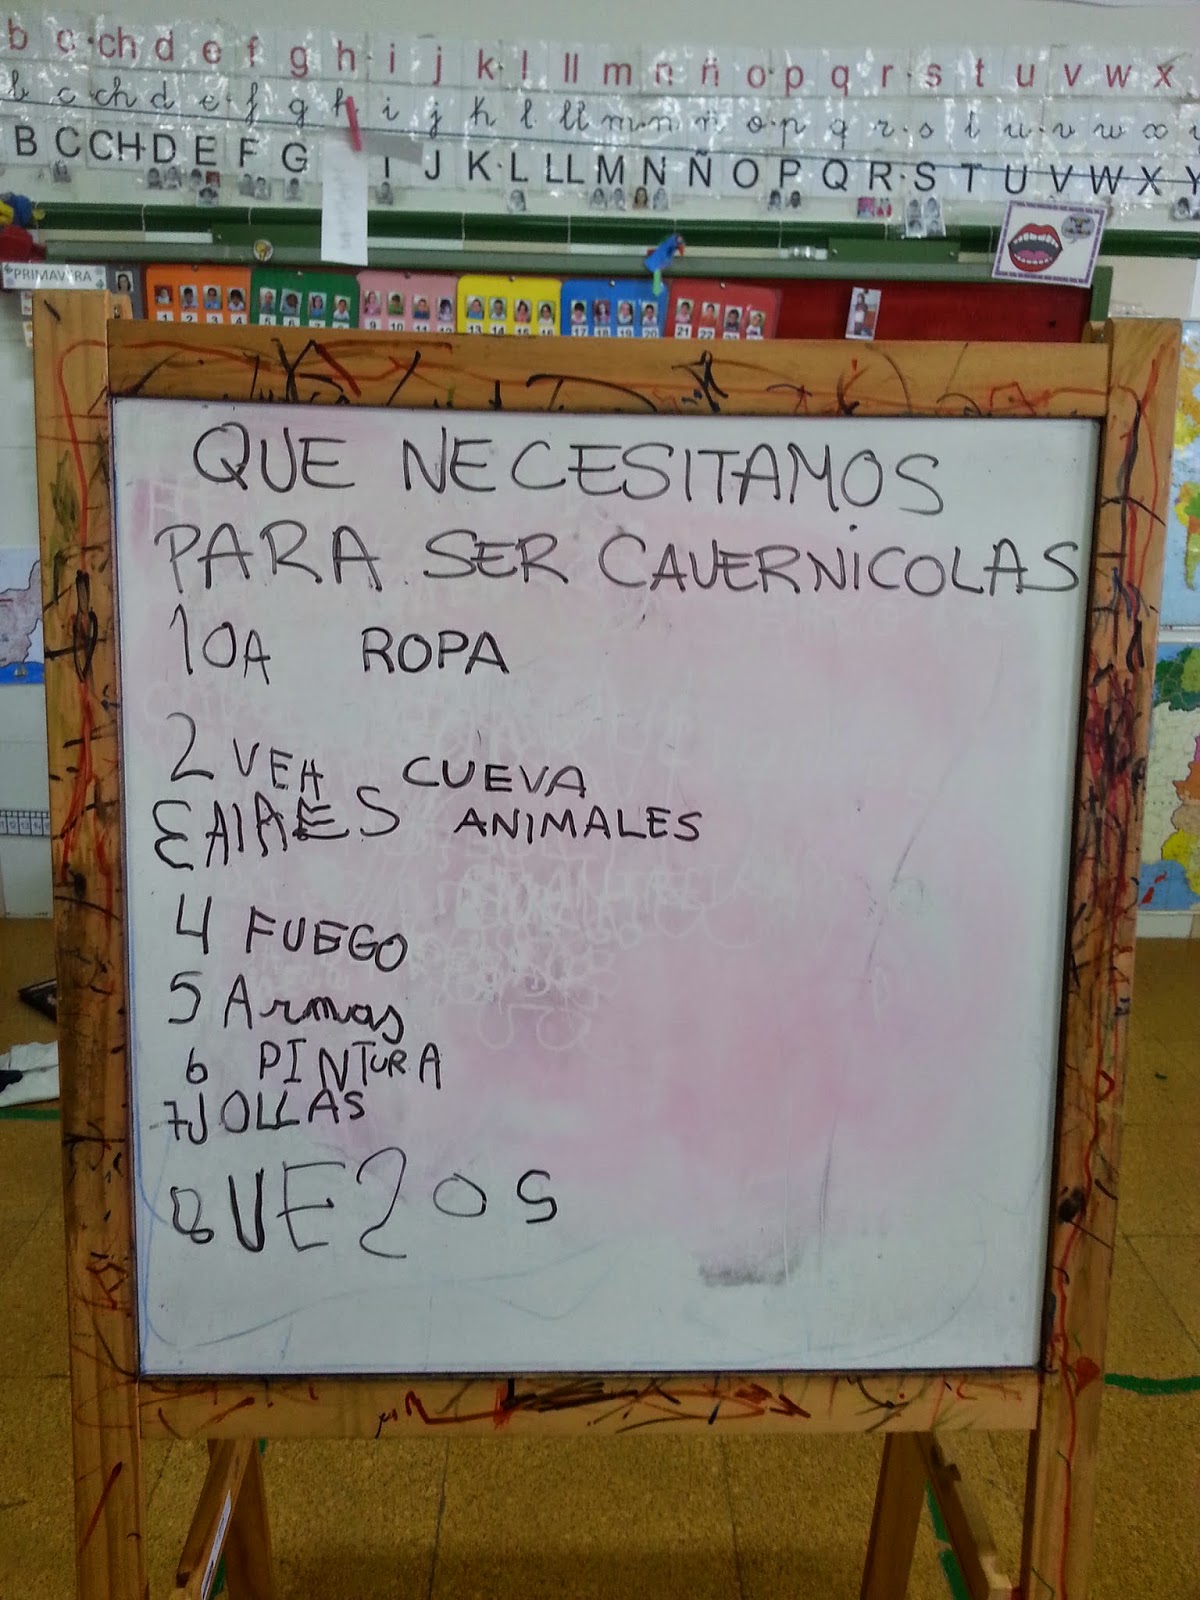 b c ch d e f g h i j k l ll m n ñ o p q r s t u v w x
b c ch d e f g h i j k l ll m n ñ o p q r s t u v w x
B C CH D E F G I J K L LL M N Ñ O P Q R S T U V W X Y
PRIMAVERA
1 2 3 4 5 6 7 8 9 10 11 12 13 14 15 16 17 18 19 20 21 22 23
QUE NECESITAMOS
PARA SER CAVERNICOLAS
1 OA ROPA
2 VEA CUEVA
3 AIAES ANIMALES
4 FUEGO
5 Armas
6 PINTURA
7 JOLLAS
8 UEZOS